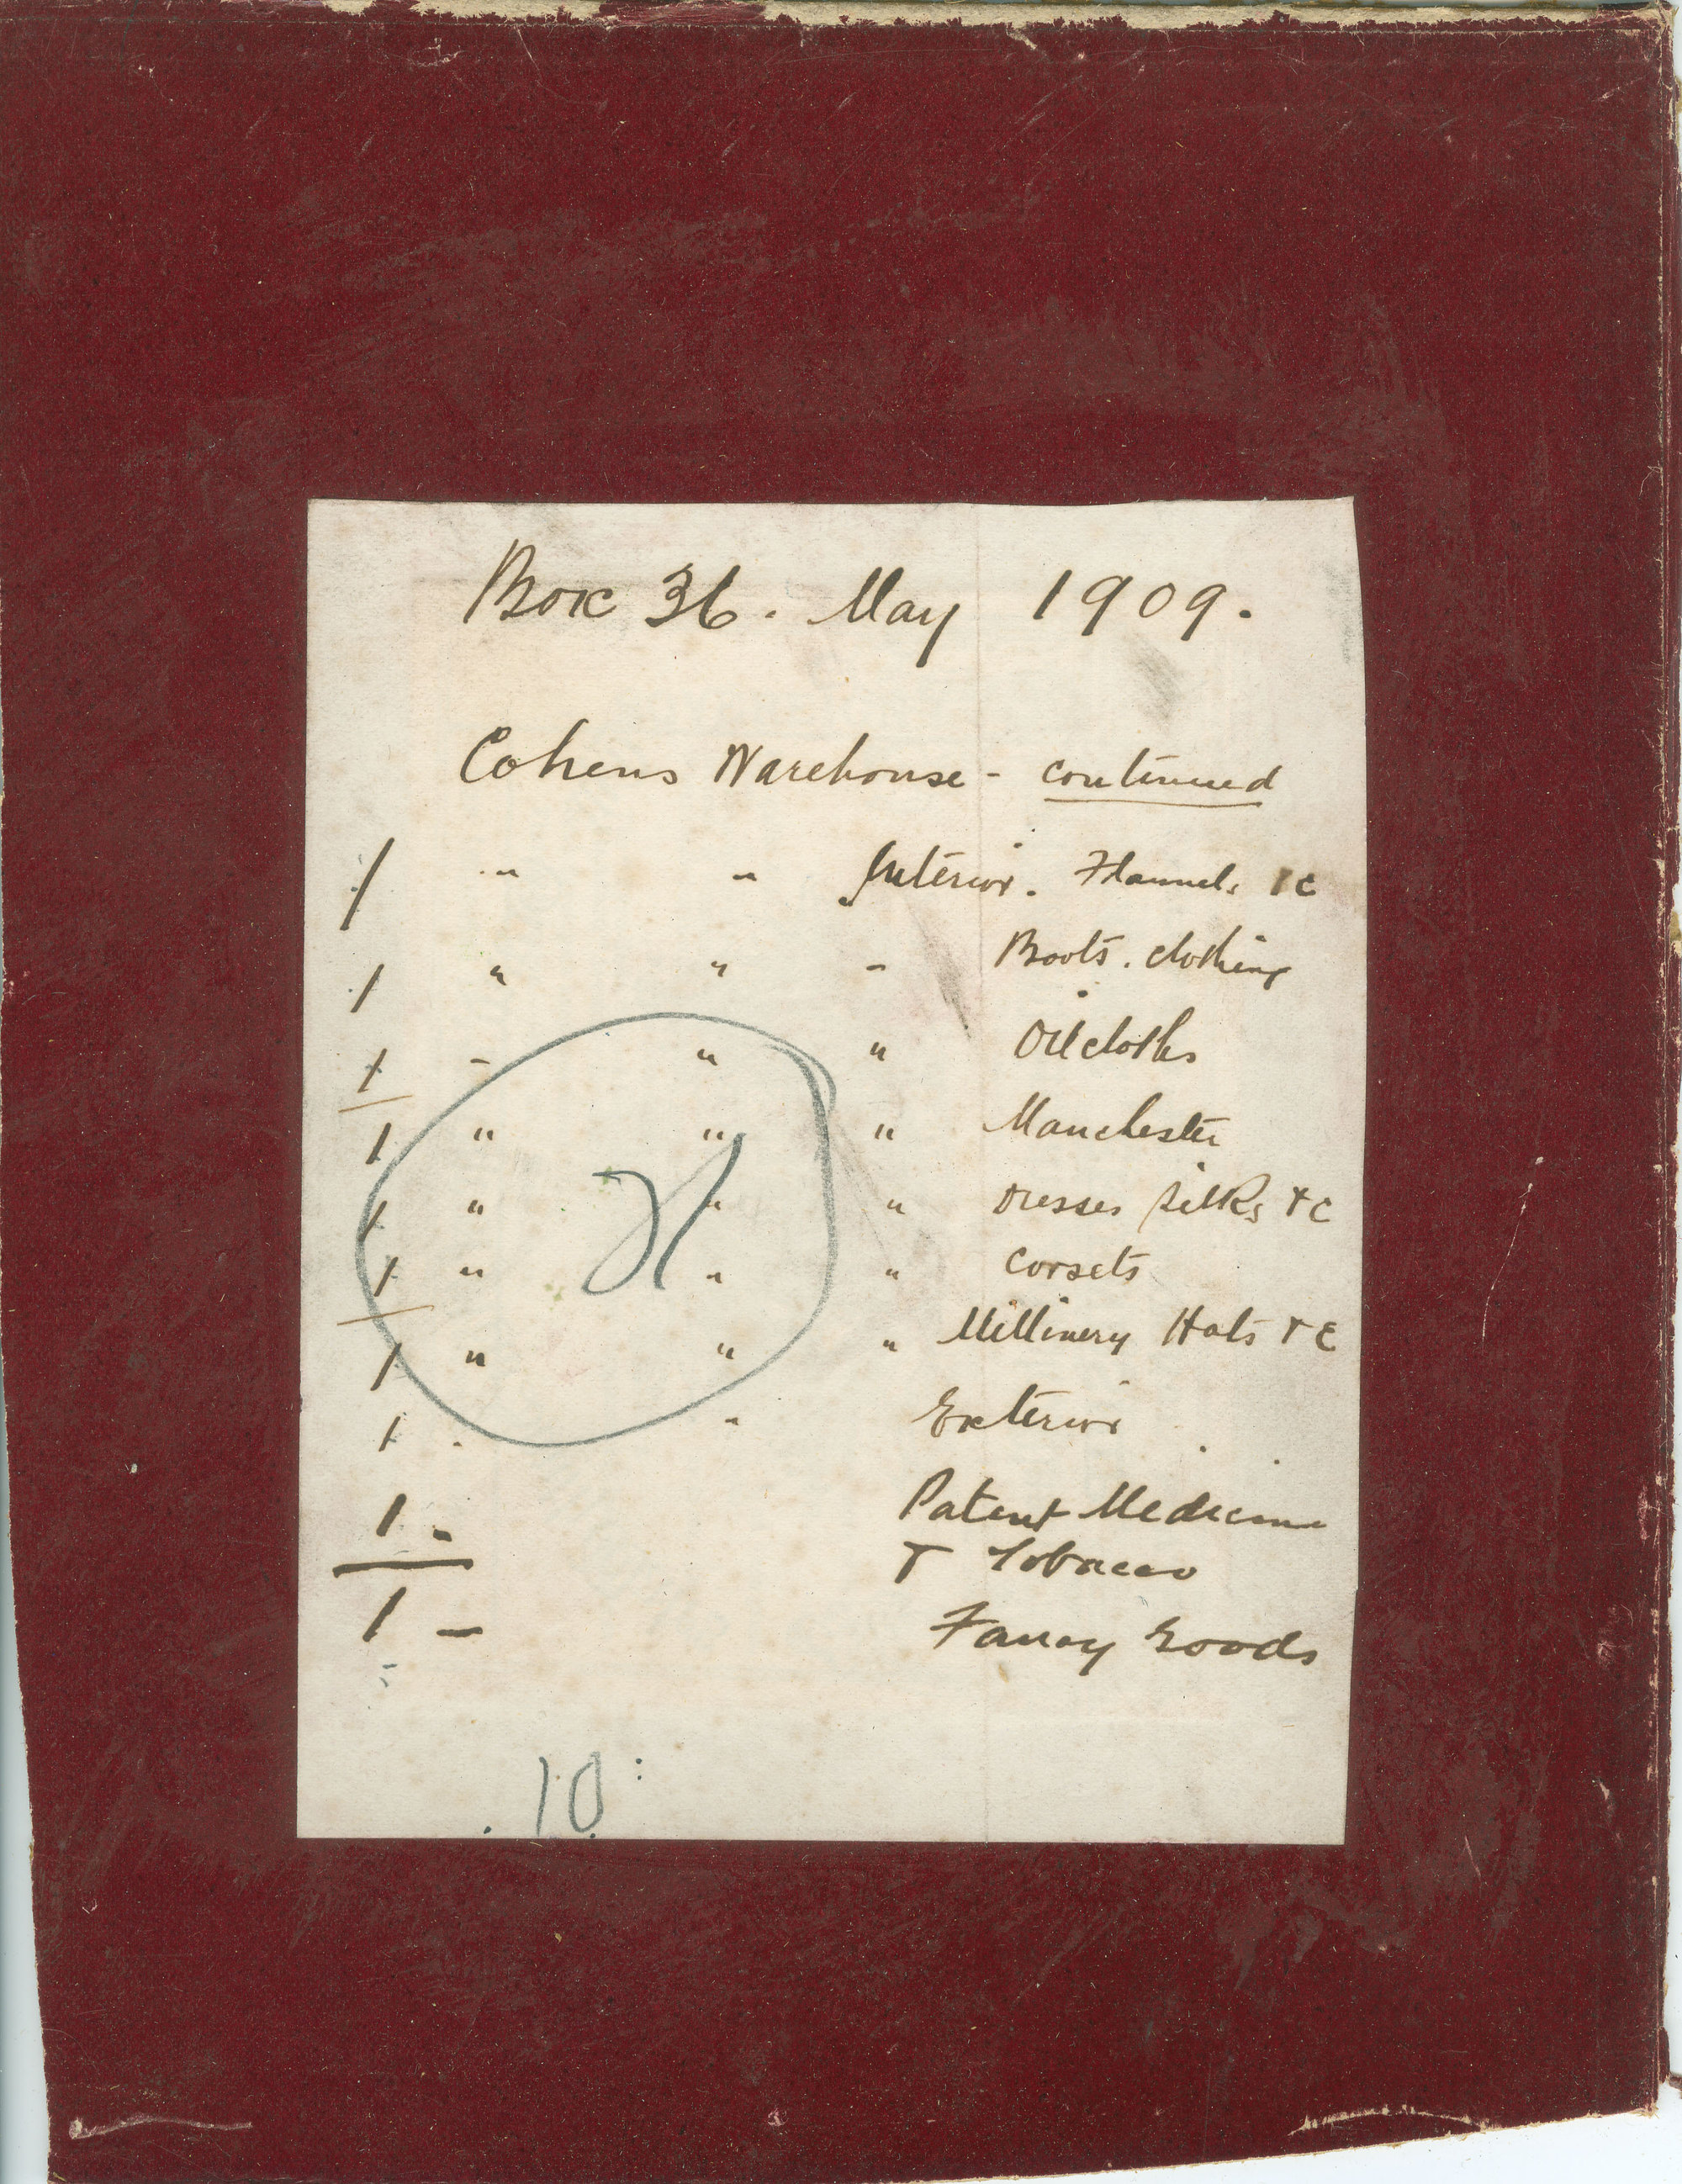 Box 36. May 1909.
Cohens Warehouse - continued
1 " " Interior. Flannels &c
1 " " " Boots. clothing
1 " " " Oilcloths
1 " " " Manchester
1 " " " Dresses Silks &c
1 " " " Corsets
1 " " " Millinery Hats &c
1 " " Exterior
1 - Patent Medicine
& Tobacco
1 - Fancy Goods
10